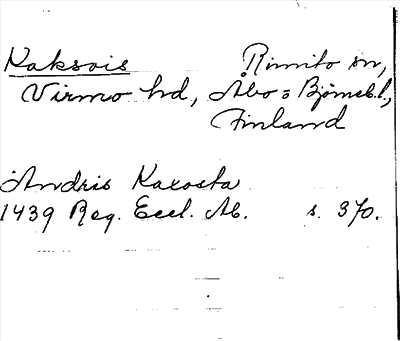 Kaksois Rimito sn,
Virmo hd, Åbo o Björneb.l.,
Finland
Andris Kaxosta
1439 Reg. Eccl. Ab. s. 370.